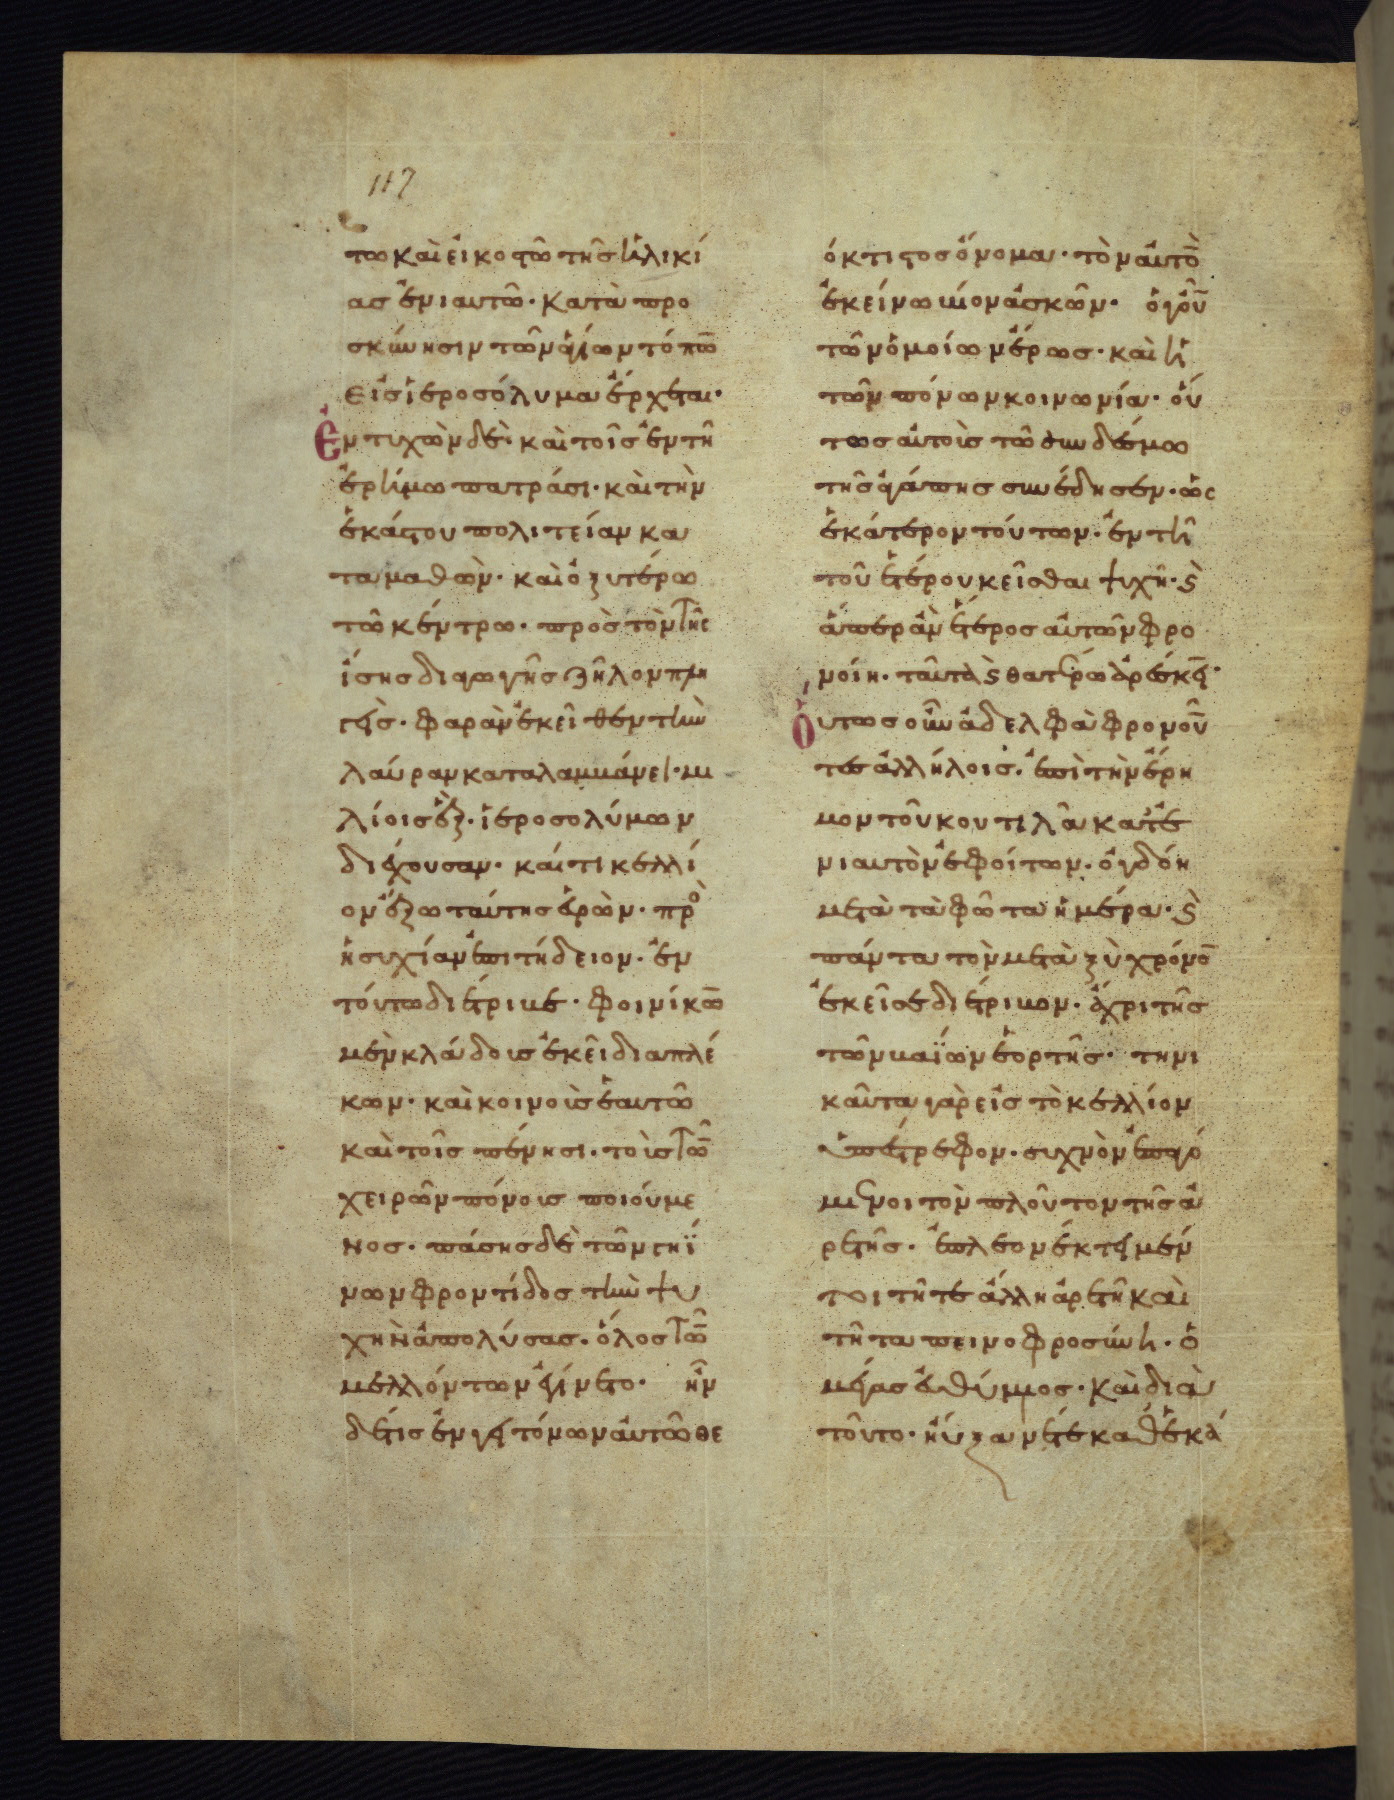 117
τω καὶ εἰκοστῶ τῆς ἡλικί
ας ἐνιαυτῶ· κατὰ προ
σκύνησιν τῶν ἁγίων τόπω̅
εἰς ἱεροσόλυμα ἔρχεται·
Ἐντυχὼν δὲ καὶ τοῖς ἐν τῆ
ἐρήμω πατράσι· καὶ τὴν
ἑκάστου πολιτείαν κα
ταμαθὼν· καὶ ὀξυτέρω
τῶ κέντρω· πρὸς τὸν τῆς
ἴσης διαγωγῆς ζῆλον πλη
γεὶς· φαρὰν ἐκεῖθεν τὴν
λαύραν καταλαμβάνει· μι
λίοις ἓξ· ἱεροσολύμων
διέχουσαν· καί τι κελλί
ον ἔξω ταύτης εὑρὼν· πρὸ
ἡσυχίαν ἐπιτήδειον· ἐν
τούτω διέτριβε· φοινίκω̅
μὲν κλάδοις ἐκεῖ διαπλέ
κων· καὶ κοινοῖς ἑαυτῶ
καὶ τοῖς πένησι· τοῖς τῶ̅
χειρῶν πόνοις ποιούμε
νος· πάσης δὲ τῶν γηΐ
νων φροντίδος τὴν ψυ
χὴν ἀπολύσας· ὅλος τῶ̅
μελλόντων ἐγίνετο· ἦν
δέ τις ἐν γειτόνων αὐτῶ θε
όκτιστος ὄνομα· τὸν αὐτὸ̅
ἐκείνω βίον ἀσκῶν· ὁ γοῦ̅
τῶν ὁμοίων ἔρως· καὶ ἡ
τῶν πόνων κοινωνία· οὕ
τως αὐτοὺς τῶ συνδέσμω
τῆς ἀγάπης συνέδησεν· ὡς
ἑκάτερον τούτων· ἐν τῆ
τοῦ ἑτέρου κεῖσθαι ψυχῆ· ϛ̀
ἅπερ ἂν ἕτερος αὐτῶν φρο
νοίη· ταῦτα ϛ̀ θατέρω ἀρέσκει̅·
Οὕτως οὖν ἀδελφὰ φρονοῦ̅
τες ἀλλήλοις· ἐπὶ τὴν ἔρη
μον τοῦ κουτιλᾶ κατ' ἐ
νιαυτὸν ἐφοίτων· ὀγδόη
μετὰ τὰ φῶτα ἡμέρα· ϛ̀
πάντα τὸν μεταξὺ χρόνο̅
ἐκεῖσε διέτριβον· ἄχρι τῆς
τῶν βαΐων ἑορτῆς· τηνι
καῦτα γὰρ εἰς τὸ κελλίον
ὑπέστρεφον· συχνὸν ἐπαγό
μενοι τὸν πλοῦτον τῆς ἀ
ρετῆς· ἐπλεονέκτει μέν
τοι τῆ τε ἄλλη ἀρετῆ καὶ
τῆ ταπεινοφροσύνη· ὁ
μέγας εὐθύμιος· καὶ διὰ
τοῦτο· ηὔξανέ τε καθ' ἑκά